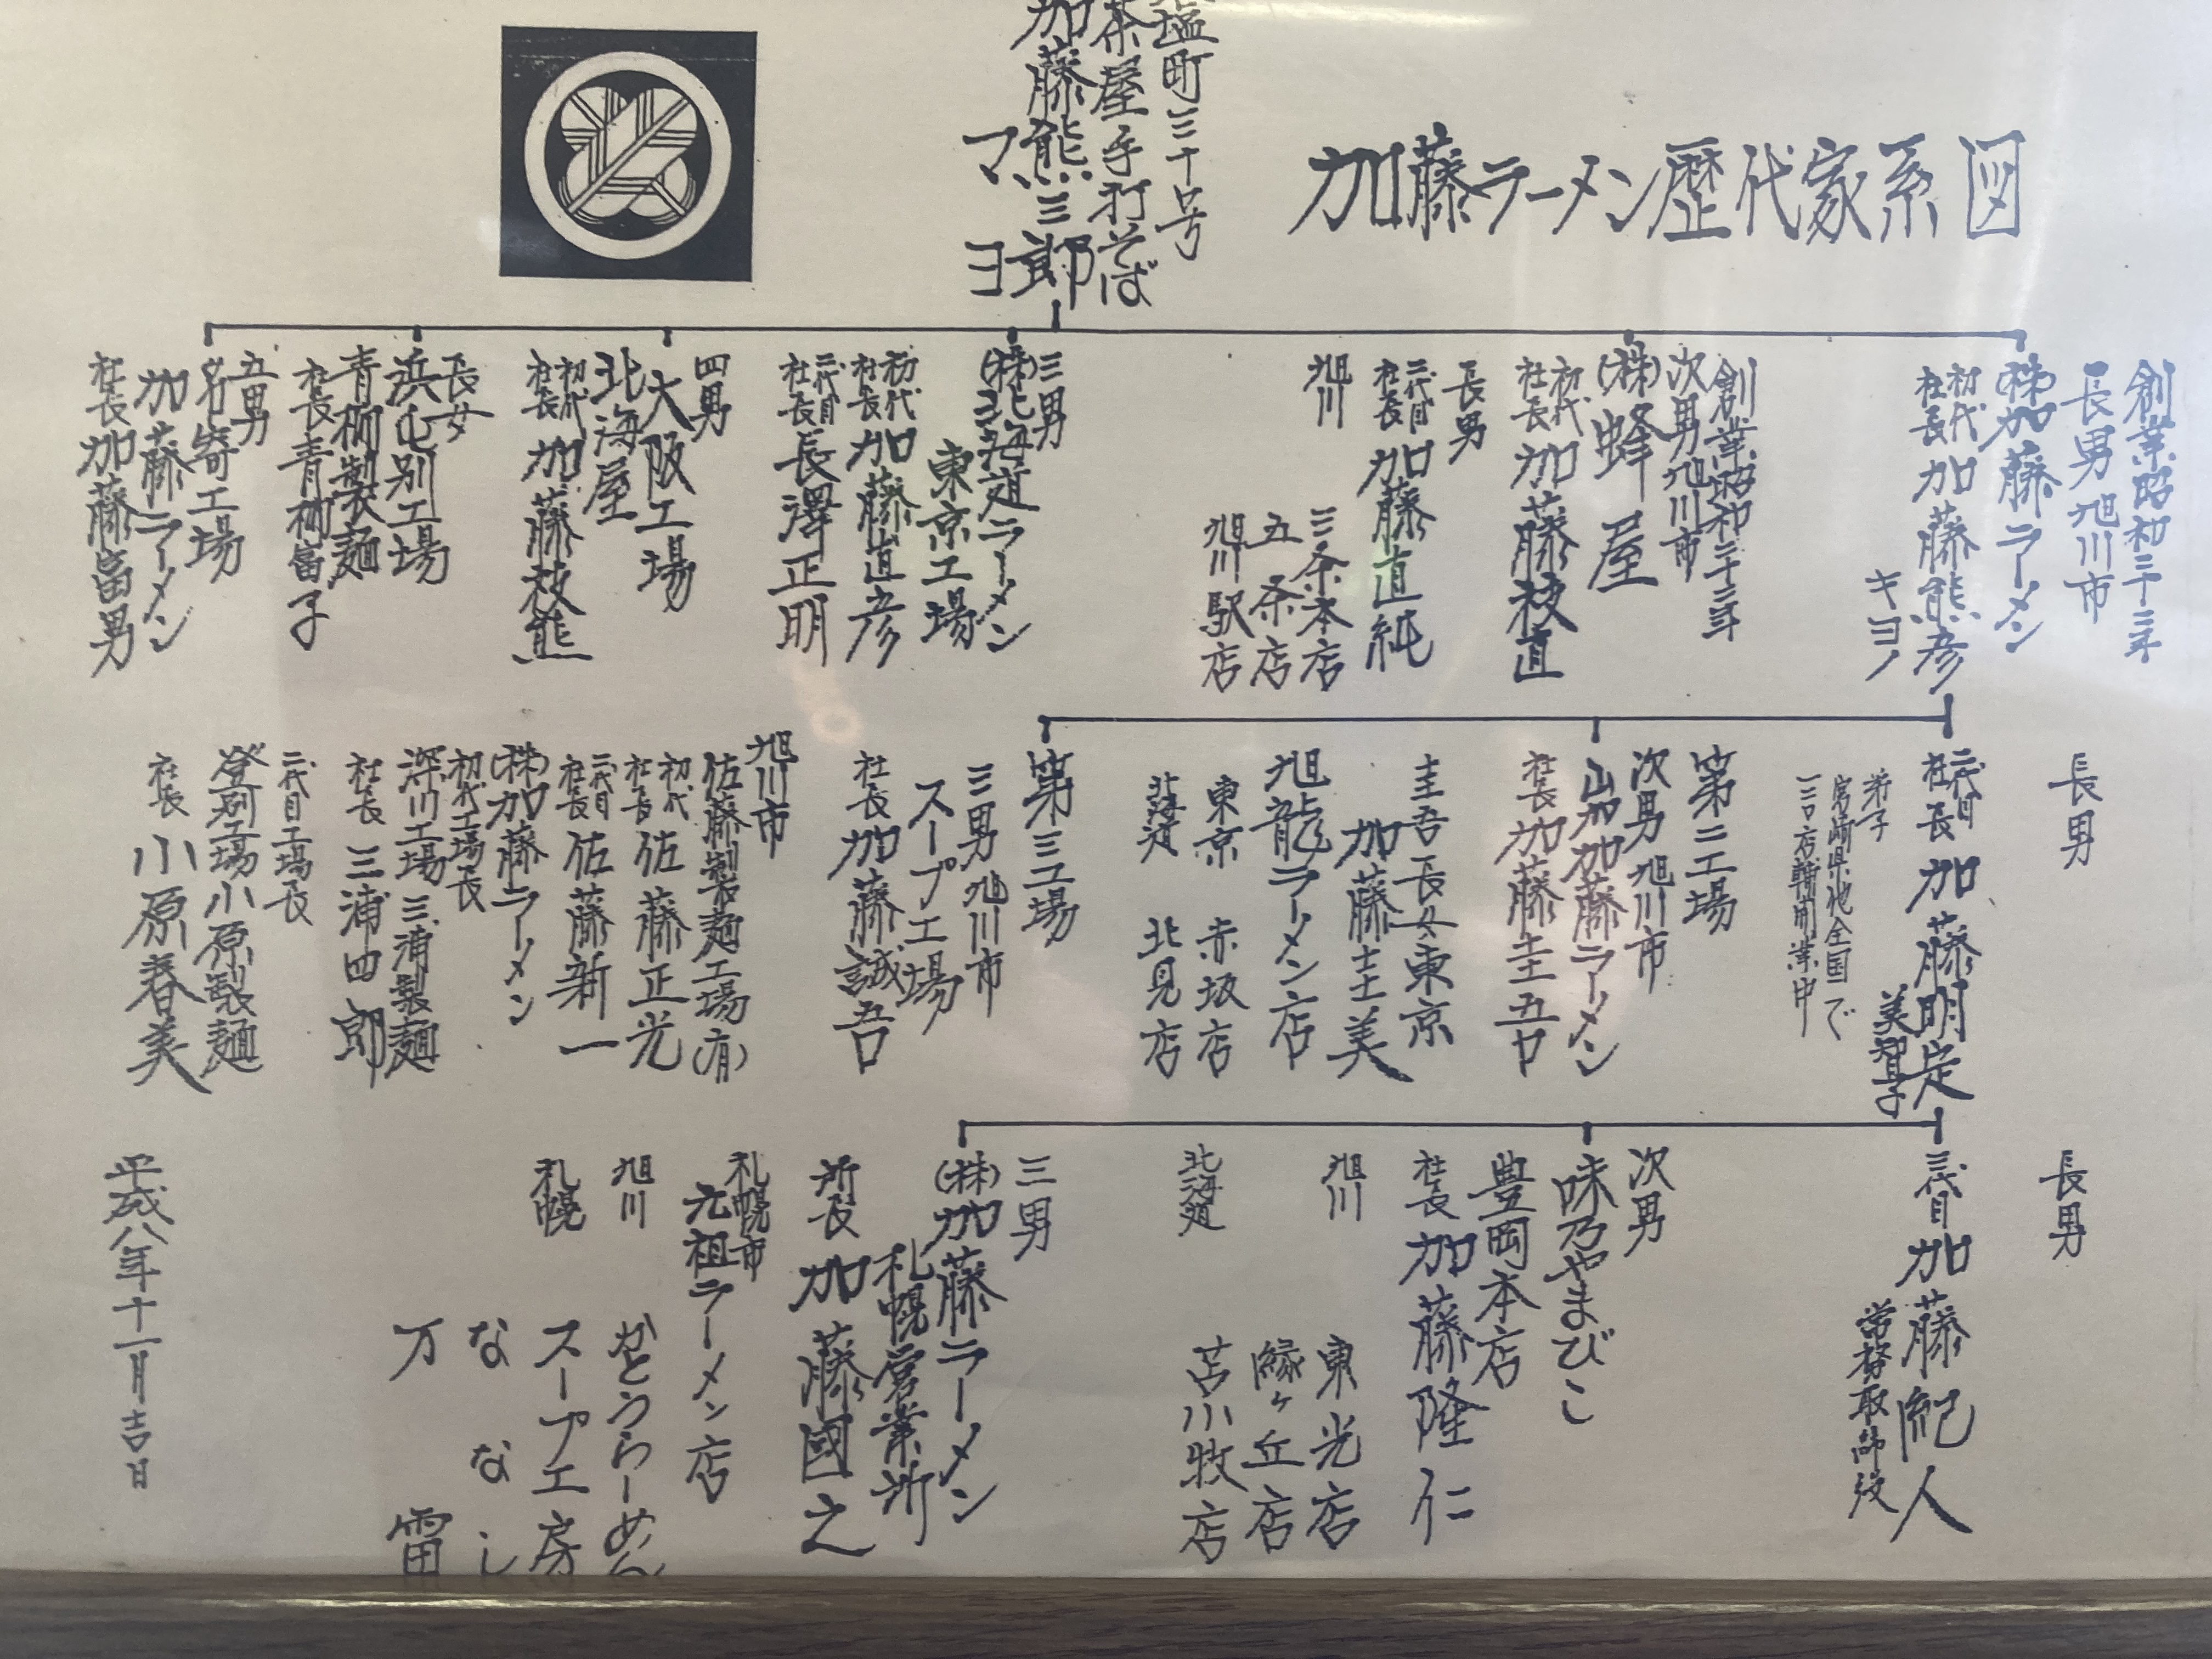 加藤ラーメン歴代家系図
塩町三十号
茶屋手打そば
加藤熊三郎
マヨ
創業昭和二十二年
長男旭川市
(株)加藤ラーメン
初代社長加藤熊彦
キヨノ
創業昭和二十二年
次男旭川市
(株)蜂屋
初代社長加藤枝直
長男
二代目社長加藤直純
旭川
三条本店
五条店
旭川駅店
三男
(株)北海道ラーメン
東京工場
初代社長加藤直彦
二代目社長長澤正明
四男
大阪工場
北海屋
初代社長加藤枝熊
長女
浜屯別工場
青柳製麺
社長青柳富子
五男
名寄工場
加藤ラーメン
社長加藤富男
長男
二代目社長加藤明定
美智子
弟子
宮崎県他全国で
一三〇店舗開業中
第二工場
次男旭川市
加藤ラーメン
社長加藤圭吾
圭吾長女東京
加藤圭美
旭龍ラーメン店
東京 赤坂店
北海道 北見店
第三工場
三男旭川市
スープ工場
社長加藤誠吾
旭川市
佐藤製麺工場(有)
初代社長佐藤正光
二代目社長佐藤新一
(株)加藤ラーメン
初代工場長
深川工場三浦製麺
社長三浦四郎
二代目工場長
登別工場小原製麺
社長小原春美
長男
三代目加藤紀人
常務取締役
次男
味乃やまびこ
豊岡本店
社長加藤隆仁
旭川 東光店
緑ヶ丘店
北海道 苫小牧店
三男
(株)加藤ラーメン
札幌営業所
所長加藤國之
札幌市
元祖ラーメン店
旭川 かとうらーめん
札幌 スープ工房
ななし
万雷
平成八年十一月吉日